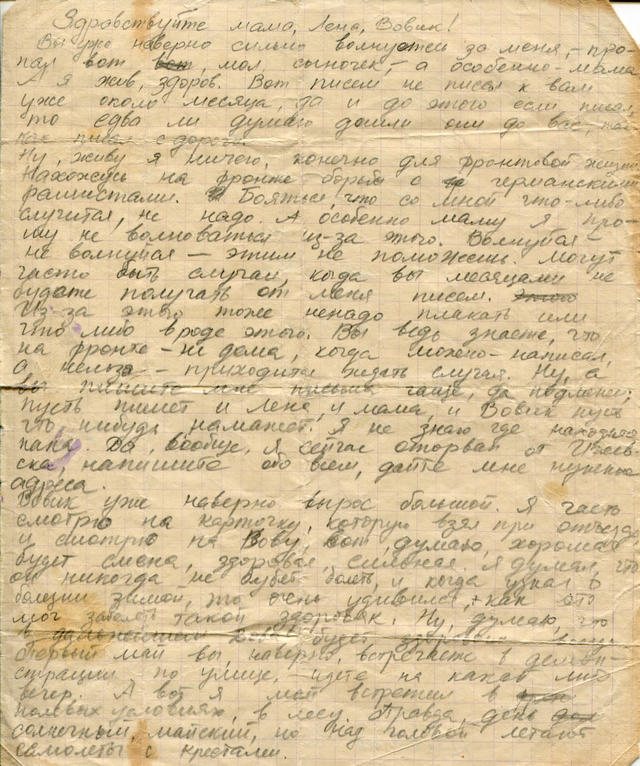 Здравствуйте мама, Лена, Вовик!
Вы уже наверно сильно волнуетесь за меня, – про-
пал вот мол, сыночек, – а особенно – мама.
А я жив, здоров. Вот писем не писал к вам
уже около месяца, да и до этого если писал,
то едва ли думаю дошли они до вас, так
как писал с дороги.
Ну, живу я ничего, конечно для фронтовой жизни.
Нахожусь на фронте борьбы с германскими
фашистами. Бояться, что со мной что-либо
случится, не надо. А особенно маму я про-
шу не волноваться из-за этого. Волнуйся –
не волнуйся – этим не поможешь. Могут
часто быть случаи, когда вы месяцами не
будете получать от меня писем.
Из-за этого тоже ненадо плакать или
что либо вроде этого. Вы ведь знаете, что
на фронте – не дома, когда можно – написал,
а нельзя – приходится ждать случая. Ну, а
вы пишите мне письма чаще, да подлинней;
пусть пишет и Лена, и мама, и Вовик пусть
что нибудь намажет. Я не знаю где находится
папа. Да, вообще, я сейчас оторван от Ижев-
ска, напишите обо всем, дайте мне нужные
адреса.
Вовик уже наверно вырос большой. Я часто
смотрю на карточку, которую взял при отъезде,
и смотрю на Вову, вот, думаю, хорошая
будет смена, здоровая, сильная. Я думал, что
он никогда не будет болеть, и когда узнал о
болезни зимой, то очень удивился, как это
мог заболеть такой здоровяк. Ну, думаю, что
в дальнейшем будет здоровый
Первый май вы, наверно, встречаете в демон-
страции по улице, – идете на какой либо
вечер. А вот я май встретил в
полевых условиях, в лесу. Правда, день
солнечный, майский, но над головой летают
самолеты с крестами.